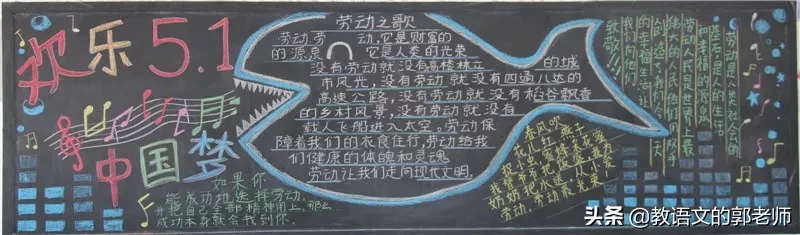 欢乐5.1
中国梦
如果你
能成功地选择劳动,
并把自己全部精神用上,那么
成功本身就会找到你.
劳动之歌
劳动,劳动,它是财富的
的源泉 它是人类的光荣
没有劳动就没有高楼林立 的城
市风光,没有劳动就没有四通八达的
高速公路,没有劳动就没有稻谷飘香
的乡村风景,没有劳动就没有
载人飞船进入太空。劳动保
障着我们的衣食住行,劳动给我
们健康的体魄和灵魂
劳动让我们走向现代文明.
春风吹
花儿红 燕子
捉虫蜜蜂采花蜜
我帮爷爷把饭盛 我为
奶奶把水送,人人爱
劳动,劳动最光荣!
劳动是人类社会的
基石,是人的生活
和幸福的源泉
劳动人民是世界上最
伟大的人,他们用双手
创造了我们今天
的幸福生活,让
我们向他们
致敬!!!
头条 @教语文的郭老师